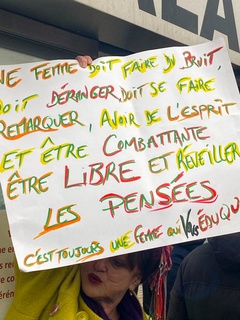 NE FEMME DOIT FAIRE DU BRUIT,
DOIT DÉRANGER DOIT SE FAIRE
REMARQUER, AVOIR DE L'ESPRIT
ET ÊTRE COMBATTANTE
ÊTRE LIBRE ET RÉVEILLER
LES PENSÉES
C'EST TOUJOURS UNE FEMME QUI VOUS ÉDUQU